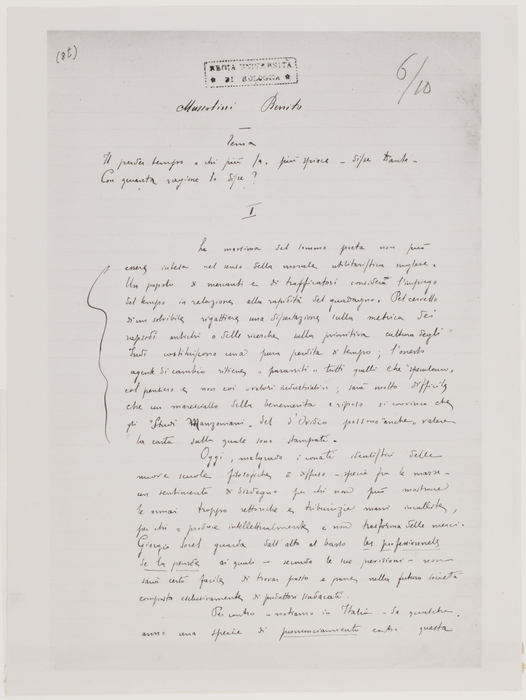 (8t)
REGIA UNIVERSITÀ
★ DI BOLOGNA ★
6/10
Mussolini Benito
Tema
Il perder tempo a chi più sa più spiace – disse Dante –
Con quanta ragione lo disse?
I
La massima del sommo poeta non può
essere intesa nel senso della morale utilitaristica inglese.
Un popolo di mercanti e di trafficatori considera l'impiego
del tempo in relazione alla rapidità del guadagno. Pel cervello
di un solvibile rigattiere una disputazione sulla metrica dei
rapsodi antichi o delle ricerche sulla primitiva cultura degli
Indi costituiscono una pura perdita di tempo; l'onesto
agente di cambio ritiene "parassiti" tutti quelli che speculano
col pensiero e non coi valori industriali; sarà molto difficile
che un maresciallo della benemerita a riposo si convinca che
gli "Studi Manzoniani" del d'Ovidio possono anche valere
la carta sulla quale sono stampati.
Oggi, malgrado i conati idealistici delle
nuove scuole filosofiche è diffuso – specie fra le masse –
un sentimento di disdegno per chi non può mostrare
le ormai troppo rettoriche e tribunizie mani incallite,
per chi produce intellettualmente e non trasforma delle merci.
Giorgio Sorel guarda dall'alto al basso les professionnels
de la pensée ai quali – secondo le sue previsioni – non
sarà certo facile di trovar posto e pane nella futura società
composta esclusivamente di produttori sindacati.
Per contro – notiamo in Italia – da qualche
anno una specie di pronunciamiento contro questa